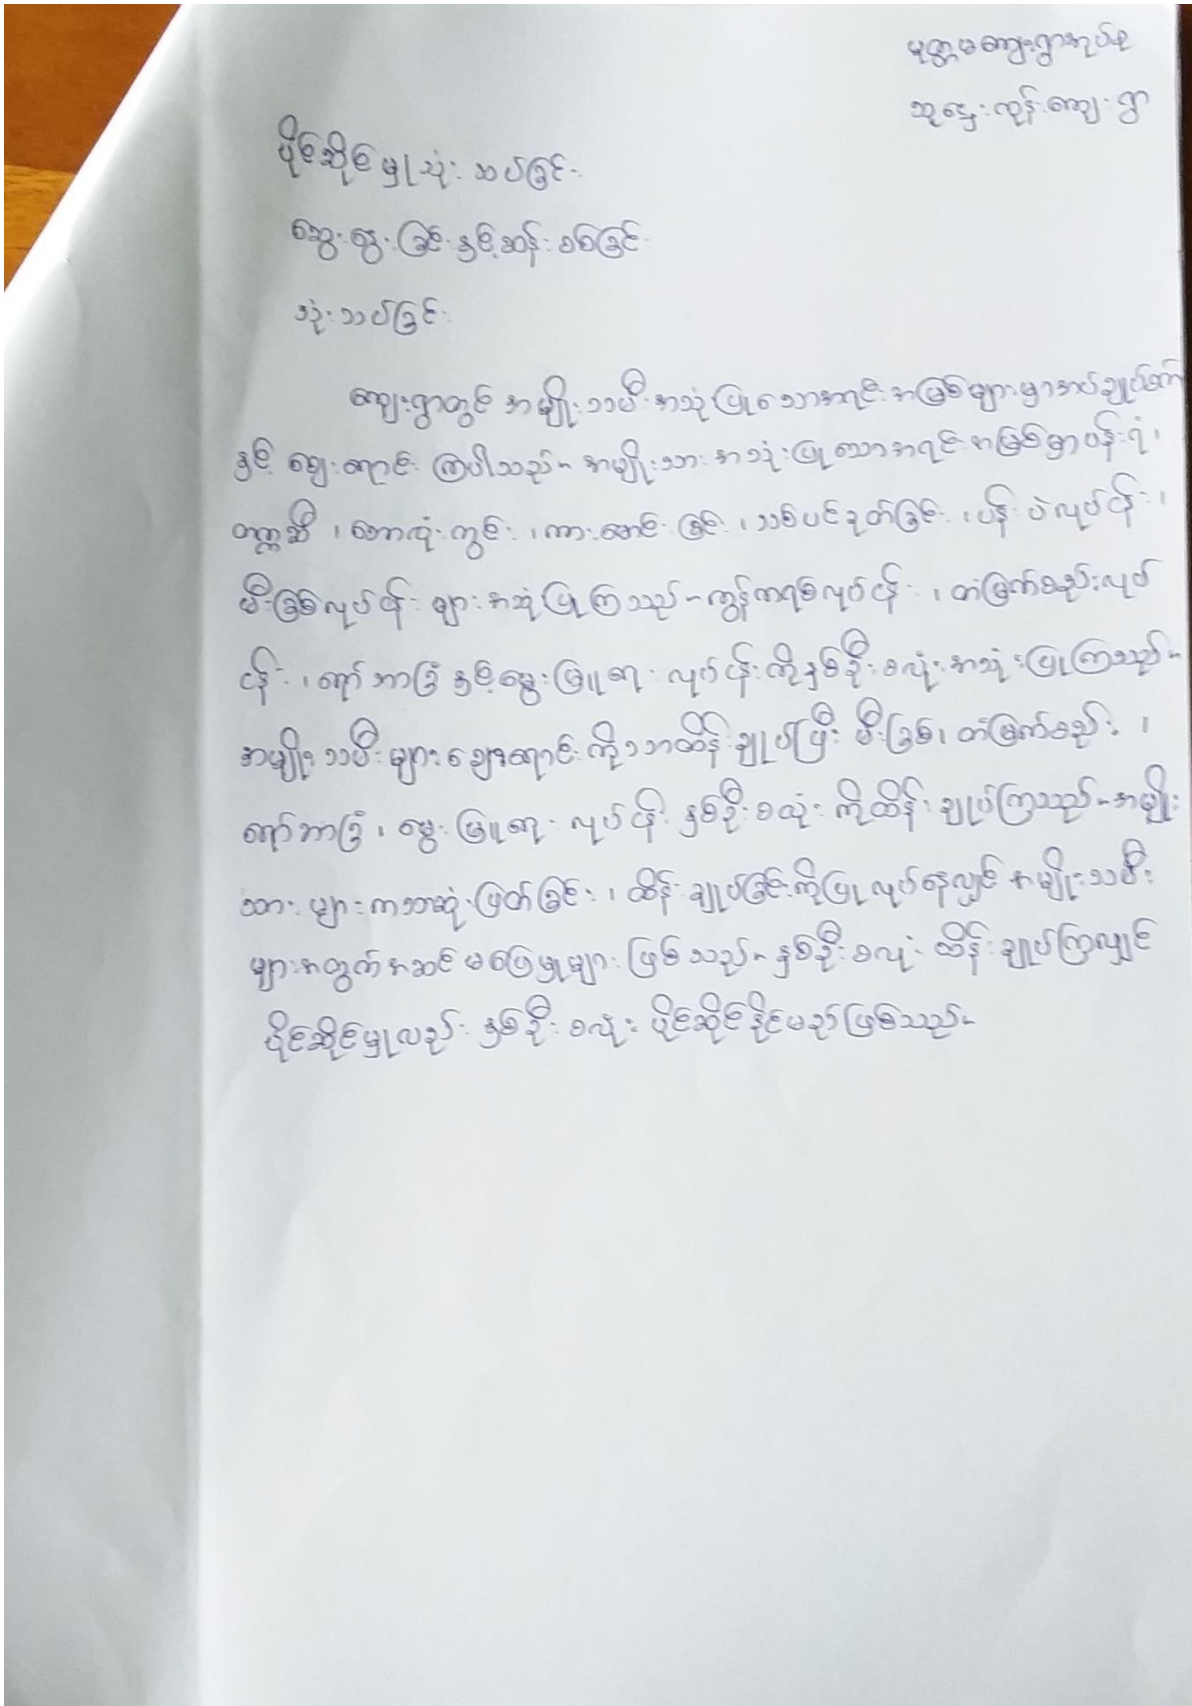 မုတ္တမကျေးရွာအုပ်စု
သူဌေးကုန်းကျေးရွာ
ပိုင်ဆိုင်မှုသုံးသပ်ခြင်း
ဆွေးနွေးခြင်းနှင့်ဆန်းစစ်ခြင်း
သုံးသပ်ခြင်း
ကျေးရွာတွင် အမျိုးသမီးအသုံပြုသောအရင်းအမြစ်များမှာအပ်ချုပ်စက်
နှင့် ဈေးရောင်းကြပါသည်။ အမျိုးသားအသုံးပြုသောအရင်းအမြစ်မှာပန်းရံ၊
တက္ကဆီ၊ ဘောလုံးကွင်း၊ ကားမောင်းခြင်း၊ သစ်ပင်ခုတ်ခြင်း၊ ပန်းပဲလုပ်ငန်း၊
မီးခြစ်လုပ်ငန်းများအသုံပြုကြသည်။ ကွန်ကရစ်လုပ်ငန်း၊ တံမြက်စည်းလုပ်
ငန်း၊ ရော်ဘာခြံနှင့်မွေးမြူရေးလုပ်ငန်းကိုနှစ်ဦးစလုံးအသုံးပြုကြသည်။
အမျိုးသမီးများဈေးရောင်းကိုသာထိန်းချုပ်ပြီး မီးခြစ်၊ တံမြက်စည်း၊
ရော်ဘာခြံ၊ မွေးမြူရေးလုပ်ငန်းနှစ်ဦးစလုံးကိုထိန်းချုပ်ကြသည်။ အမျိုး
သားများကသာဆုံးဖြတ်ခြင်း၊ ထိန်းချုပ်ခြင်းကိုပြုလုပ်နေလျှင် အမျိုးသမီး
များအတွက်အဆင်မပြေမှုများဖြစ်သည်။ နှစ်ဦးစလုံးထိန်းချုပ်ကြလျှင်
ပိုင်ဆိုင်မှုလည်းနှစ်ဦးစလုံးပိုင်ဆိုင်နိုင်မည်ဖြစ်သည်။